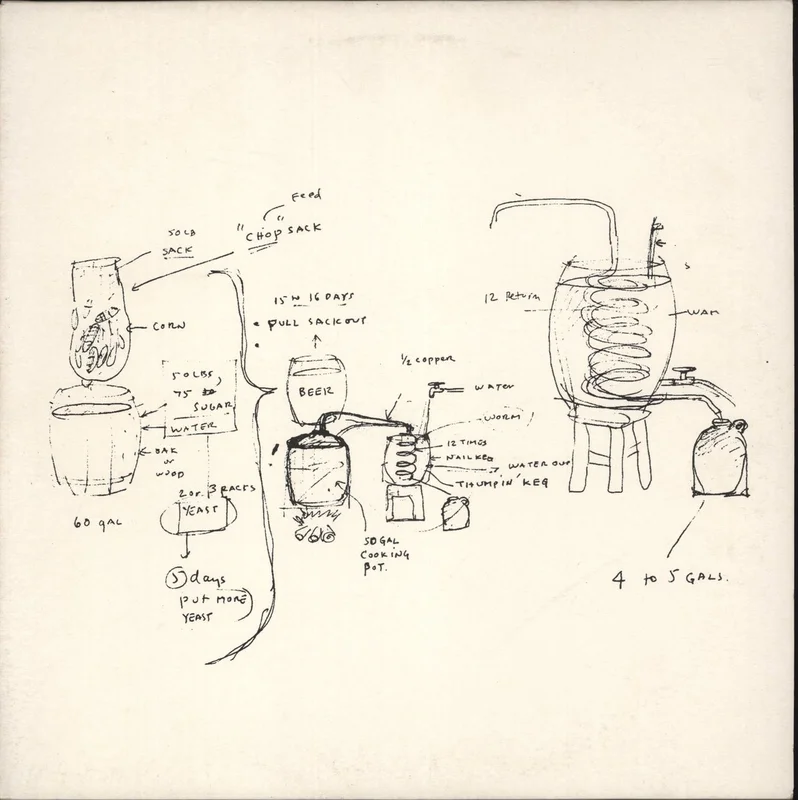 Feed
"CHOP" SACK
50 LB
SACK
CORN
50 LBS,
75
SUGAR
WATER
OAK
or
WOOD
60 gAL
2 or 3
YEAST
5 days
put MORE
YEAST
15 16 DAYS
• PULL SACK OUT
•
BEER
1/2 COPPER
WATER
WORM
12 TIMES
NAIL KEG
WATER OUT
THUMPIN' KEG
50 GAL
COOKING
POT.
12 Return
4 to 5 GALS.